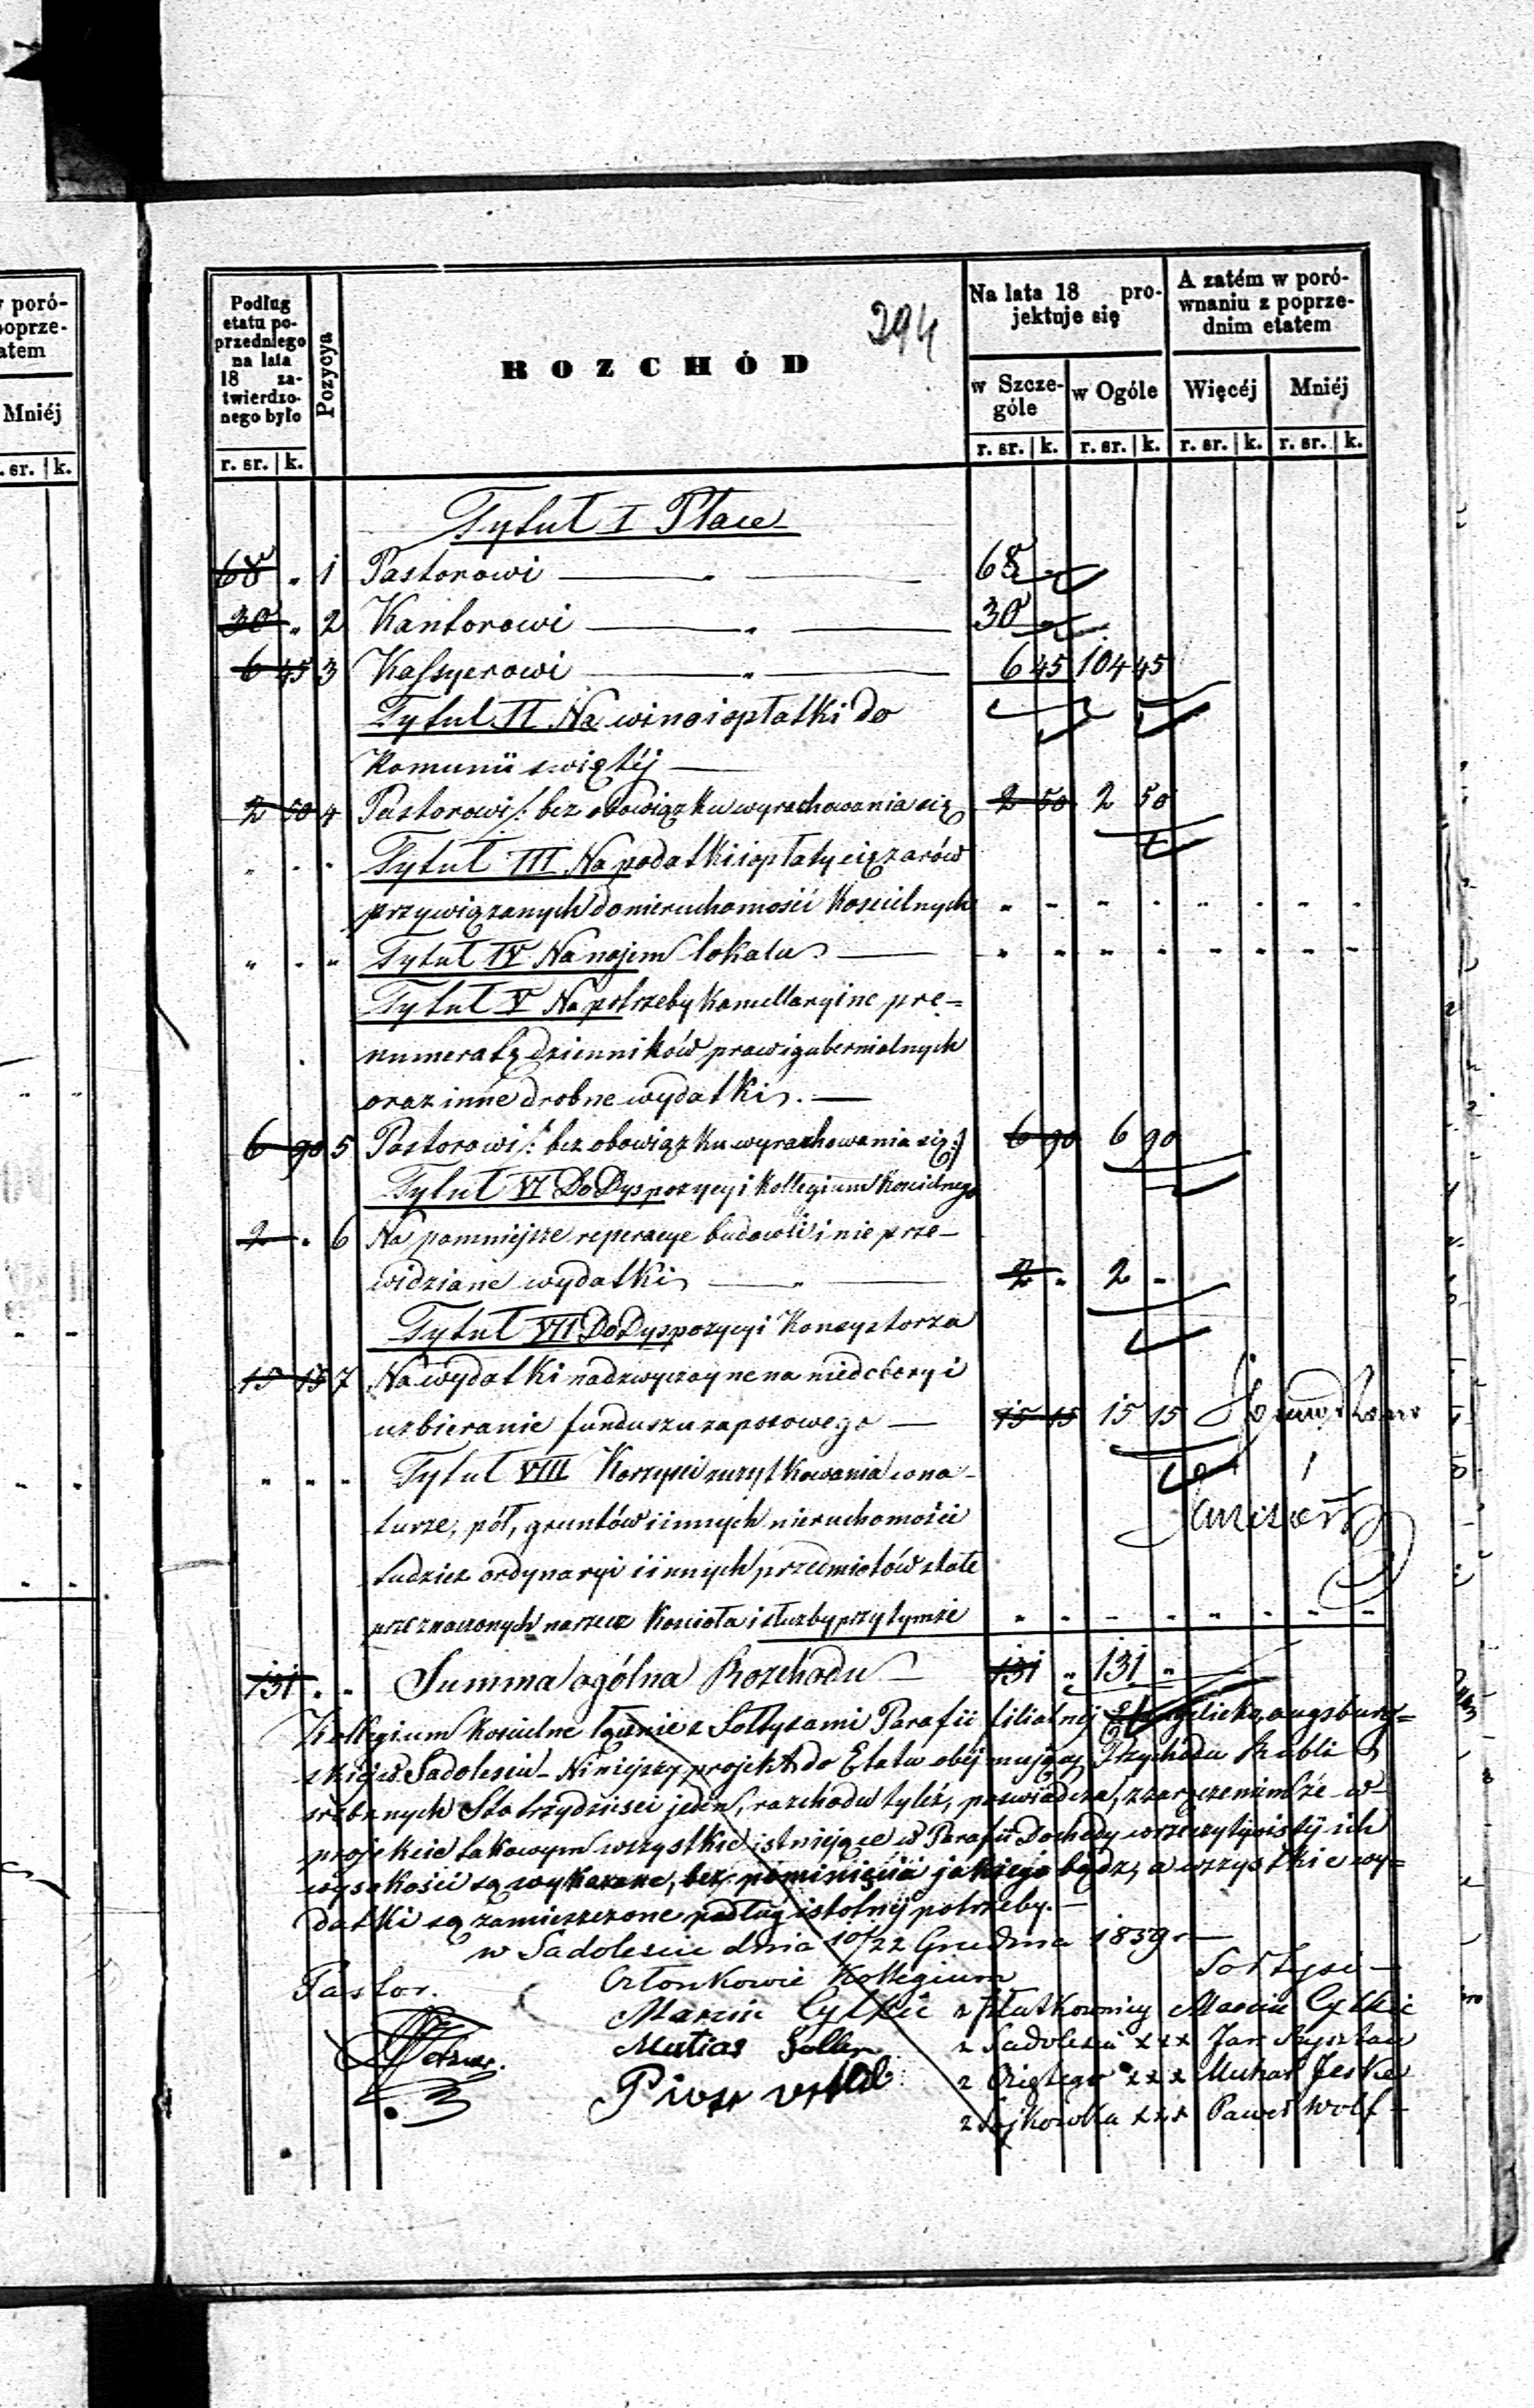 w poró-
poprze-
atem
Mniéj
r. sr. k.
Podług
etatu po-
przedniego
na lata
18 za-
twierdzo-
nego było
r. sr. k.
Pozycya
ROZCHÓD
294
Na lata 18 pro-
jektuje się
w Szcze-
góle
w Ogóle
r. sr. k. r. sr. k.
A zatém w poró-
wnaniu z poprze-
dnim etatem
Więcéj Mniéj
r. sr. k. r. sr. k.
Tytuł I Płace
68 " 1 Pastorowi — " — 68 "
30 " 2 Kantorowi — " — 30 "
6 45 3 Kassyerowi — " — 6 45 104 45
Tytuł II Na wino i opłatki do
Komunii świętéj —
2 50 4 Pastorowi /: bez obowiązku wyrachowania się 2 50 2 50
" " " Tytuł III Na podatki i opłaty ciężarów
przywiązanych do nieruchomości Kościelnych " " " " " " " "
" " " Tytuł IV Na najem lokalu — " " " " " " " "
Tytuł V Na potrzeby Kancellaryine pre=
numeratę dzienników praw i gubernialnych
oraz inne drobne wydatki. —
6 90 5 Pastorowi /: bez obowiązku wyrachowania się :/ 6 90 6 90
Tytuł VI Do Dyspozycyi Kollegium Kościelnego
2 " 6 Na pomniejsze reperacye budowli i nie prze-
widziane wydatki — " — 2 " 2 "
Tytuł VII Do Dyspozycyi Konsystorza
15 15 7 Na wydatki nadzwyczayne na niedobory i
uzbieranie funduszu zapasowego — 15 15 15 15
" " " Tytuł VIII Korzyści z użytkowania w na-
turze, pół, gruntów i innych nieruchomości
tudzież ordynaryi i innych przedmiotów stale
przeznaczonych na rzecz Kościoła i służby przy tymże " " " " " " " "
131 " " Summa ogólna Rozchodu — 131 " 131 "
Kollegium Kościelne łącznie z Sołtysami Parafii filialnéj Ewangelicko, augsburg=
skiéj w Sadolesiu - Niniejszy projekt do Etatu obéjmujący Przychodu Rubli
srebrnych Sto trzydzieści jeden, rozchodu tyleż, poświadcza, z zaręczeniem że w
projekcie takowym wszystkie istniejące w Parafii Dochody w rzeczywistéj ich
wysokości są wykazane, bez pominięcia jakiego bądź, a wszystkie wy=
datki są zamieszczone podług istotnéj potrzeby. —
w Sadolesiu dnia 10/22 Grudnia 1859 r —
Pastor. Członkowie Kollegium Sołtysi —
Marcin Cytkie z Płatkownicy Marcin Cytkie
Matias z Sadolesia xxx Jan
Piotr z xxx Michał Jeske
z xxx Paweł Wolf -